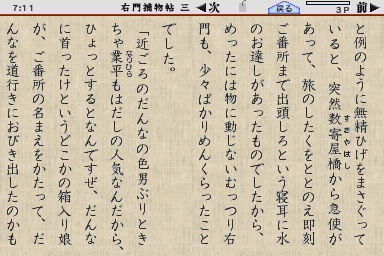 7:11
右門捕物帖 三
◀次
戻る
3P
前▶
と例のように無精ひげをまさぐって
いると、突然数寄屋橋から急使が
すきやばし
あって、旅のしたくをととのえ即刻
ご番所まで出頭しろという寝耳に水
のお達しがあったものでしたから、
めったには物に動じないむっつり右
門も、少々ばかりめんくらったこと
でした。
「近ごろのだんなの色男ぶりとき
ちゃ業平もはだしの人気なんだから、
なりひら
ひょっとするとなんですぜ、だんな
に首ったけというどこかの箱入り娘
が、ご番所の名まえをかたって、だ
んなを道行きにおびき出したのかも